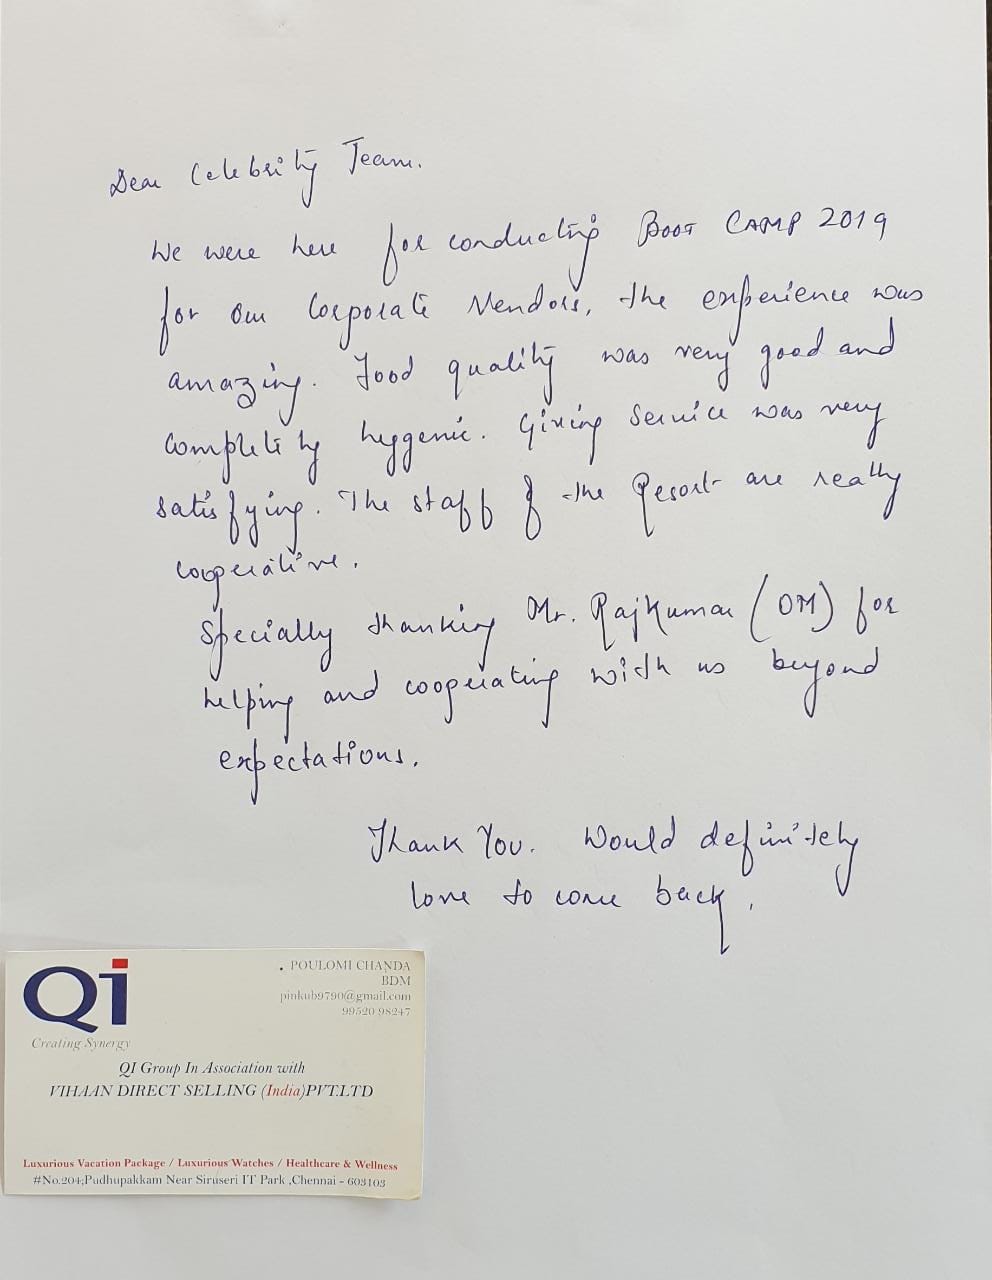 Dear Celebrity Team.
We were here for conducting BOOT CAMP 2019
for our Corporate Vendors, the experience was
amazing. Food quality was very good and
completely hygenic. Giving Service was very
satisfying. The staff of the Resort are really
cooperative.
Specially thanking Mr. Rajkumar (OM) for
helping and cooperating with us beyond
expectations.
Thank You. Would definitely
love to come back.
Qi
Creating Synergy
. POULOMI CHANDA
BDM
pinkub9790@gmail.com
99520 98247
QI Group In Association with
VIHAAN DIRECT SELLING (India)PVT.LTD
Luxurious Vacation Package / Luxurious Watches / Healthcare & Wellness
#No.204;Pudhupakkam Near Siruseri IT Park ,Chennai - 603103